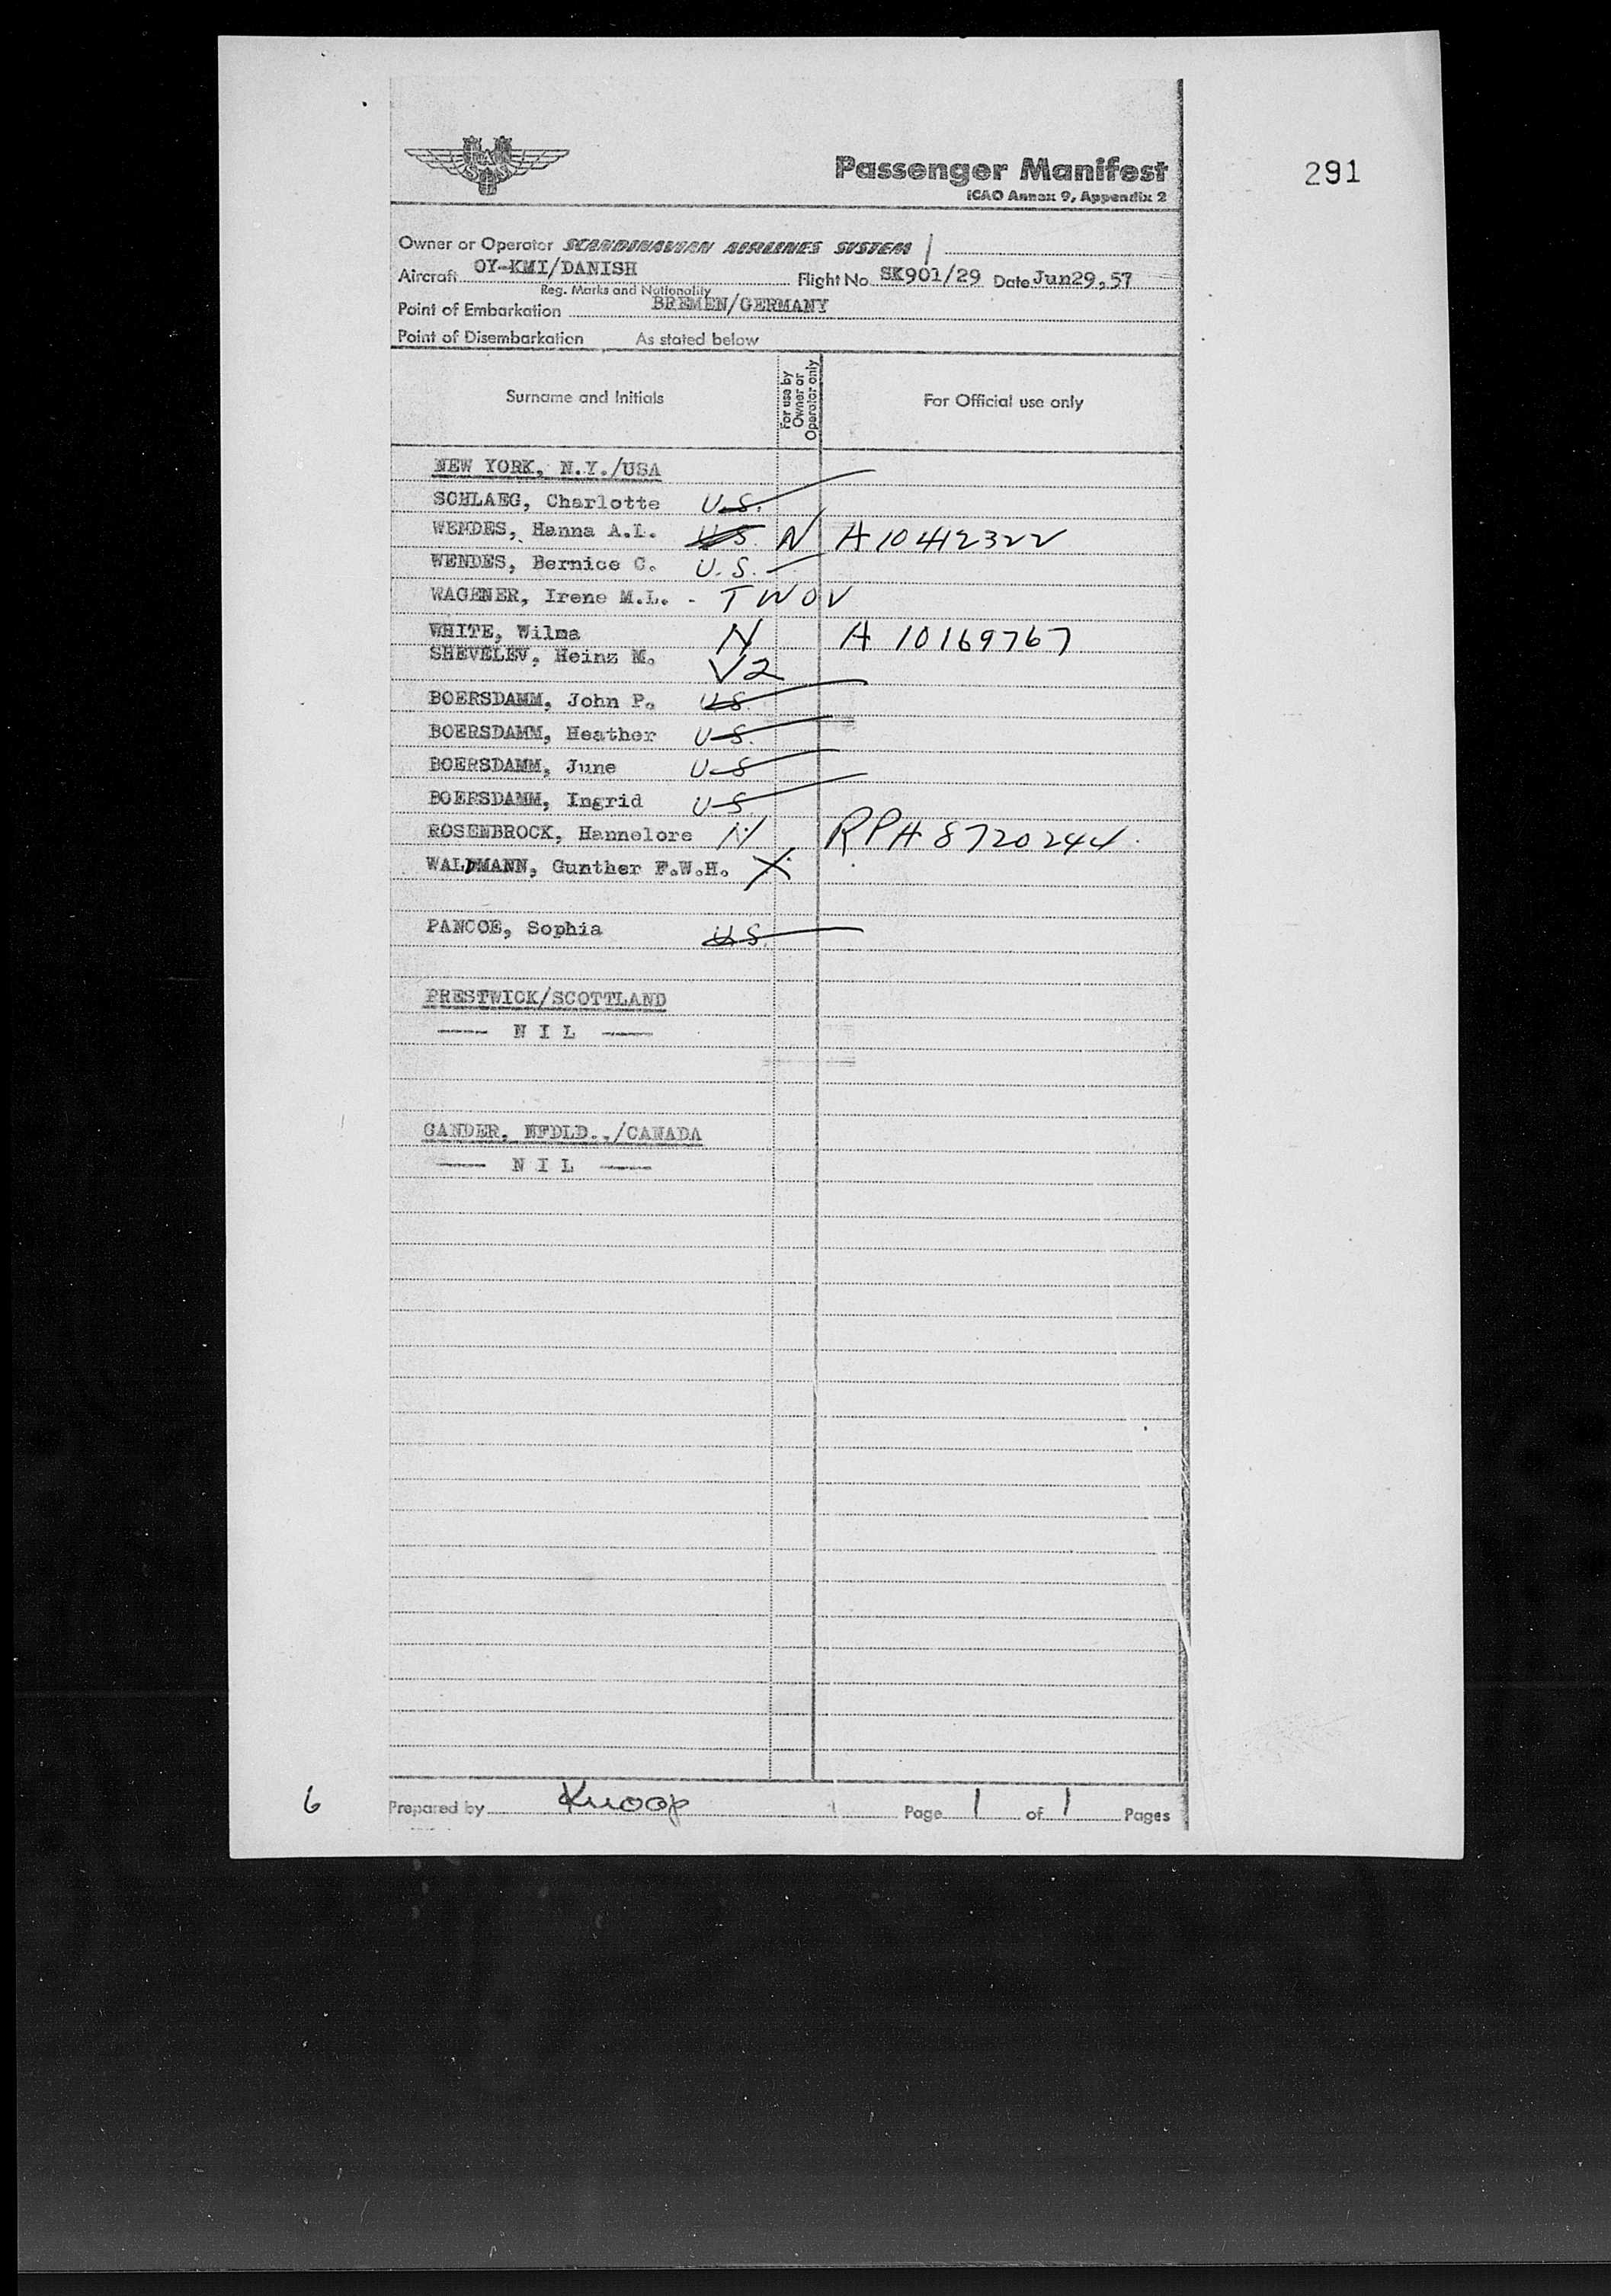 SAS
Passenger Manifest
291
ICAO Annex 9, Appendix 2
Owner or Operator SCANDINAVIAN AIRLINES SYSTEM /
Aircraft OY-KMI/DANISH Flight No. SK901/29 Date Jun29,57
Reg. Marks and Nationality
Point of Embarkation BREMEN/GERMANY
Point of Disembarkation As stated below
Surname and Initials
For use by Owner or Operator only
For Official use only
NEW YORK, N.Y./USA
SCHLAEG, Charlotte U.S.
WENDES, Hanna A.L. U.S. N A 10412322
WENDES, Bernice C. U.S.
WAGENER, Irene M.L. - TWOV
WHITE, Wilma N A 10169767
SHEVELEV, Heinz M. V2
BOERSDAMM, John P. U.S.
BOERSDAMM, Heather U.S.
BOERSDAMM, June U.S
BOERSDAMM, Ingrid U.S.
ROSENBROCK, Hannelore N RPA 8720244
WALDMANN, Gunther F.W.H. X
PANCOE, Sophia U.S.
PRESTWICK/SCOTTLAND
---- N I L ----
GANDER, NFDLD../CANADA
---- N I L ----
6
Prepared by Knoop Page 1 of 1 Pages